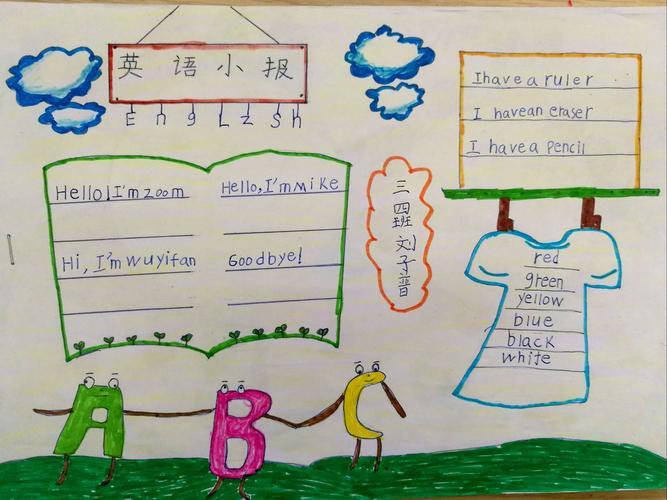 英语小报
EngLzSh
Hello,I'm zoom
Hello,I'm Mike
Hi, I'm wuyifan
Goodbye!
三四班刘子普
I have a ruler
I have an eraser
I have a pencil
red
green
yellow
blue
black
white
A B C